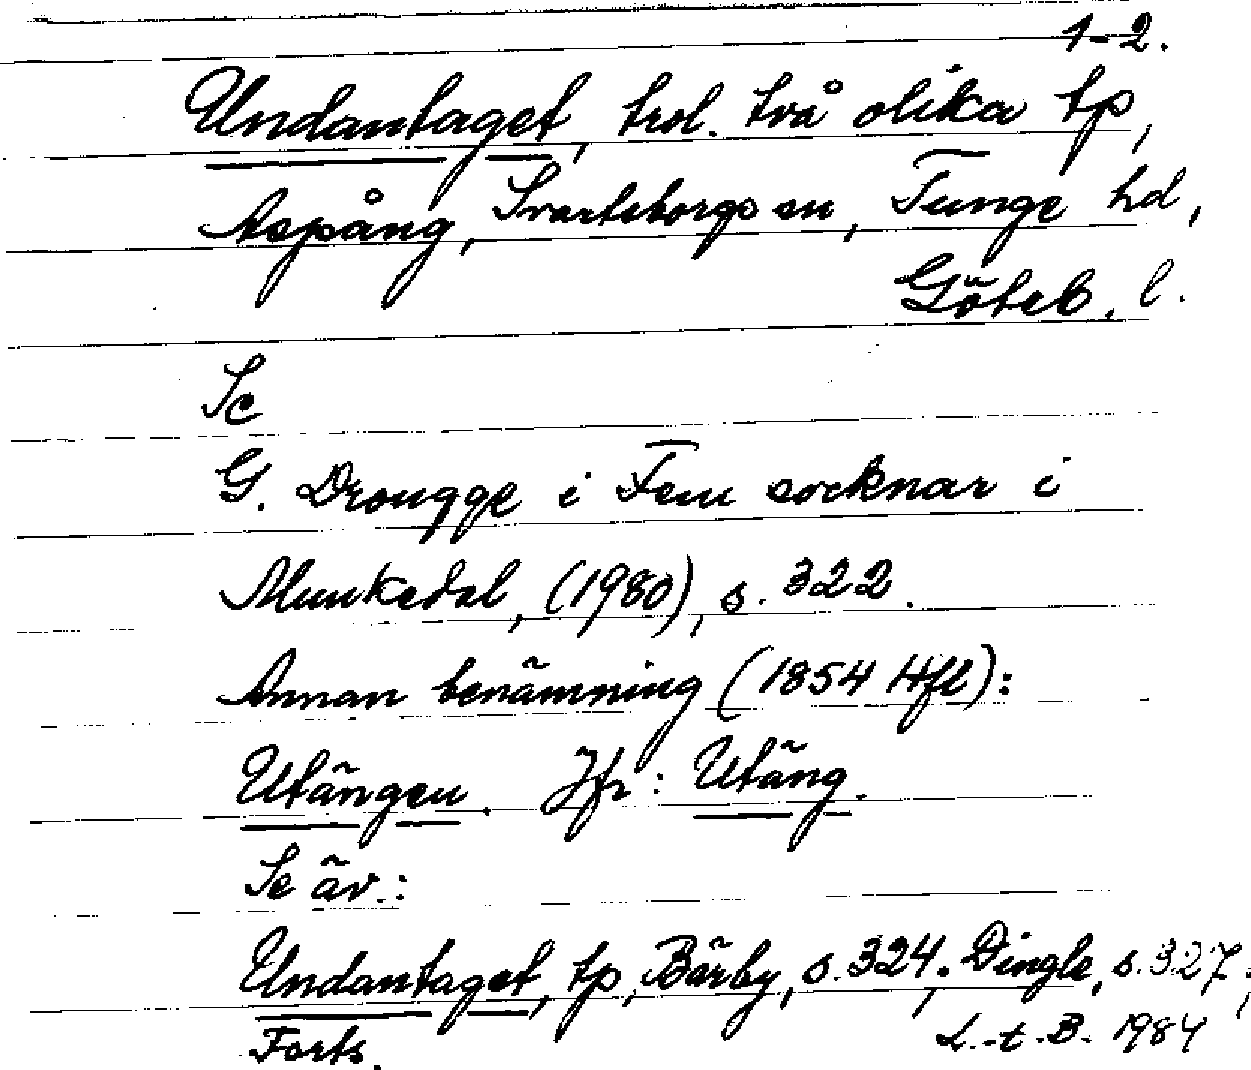 1-2.
Undantaget, trol. två olika tp,
Aspång, Svarteborgs sn, Tunge hd,
Göteb. l.
Se
G. Drougge i Fem socknar i
Munkedal, (1980), s. 322.
Annan benämning (1854 Hfl):
Utängen. Jfr: Utäng.
Se äv.:
Undantaget, tp, Bärby, s. 324; Dingle, s. 327;
Forts.
L.-t.B. 1984